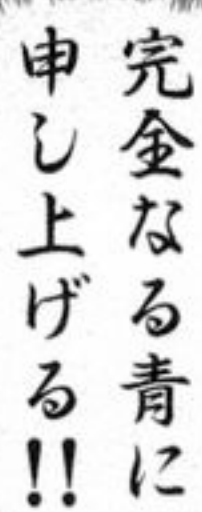 完全なる青に
申し上げる!!